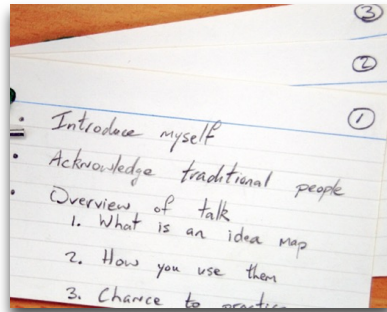 ③
②
①
• Introduce myself
• Acknowledge traditional people
• Overview of talk
1. What is an idea map
2. How you use them
3. Chance to practice